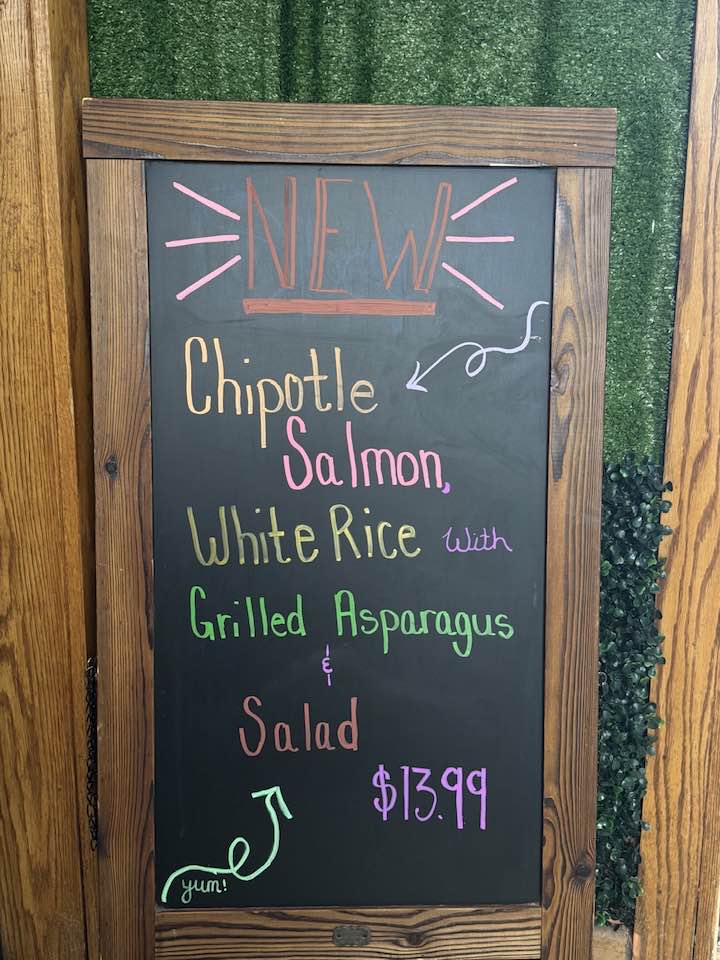 NEW
Chipotle
Salmon,
White Rice With
Grilled Asparagus
&
Salad
$13.99
yum!